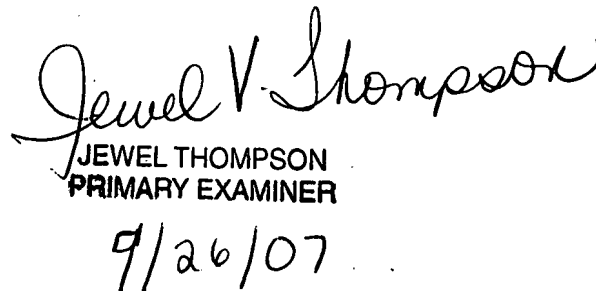 Jewel V. Thompson
JEWEL THOMPSON
PRIMARY EXAMINER
9/26/07